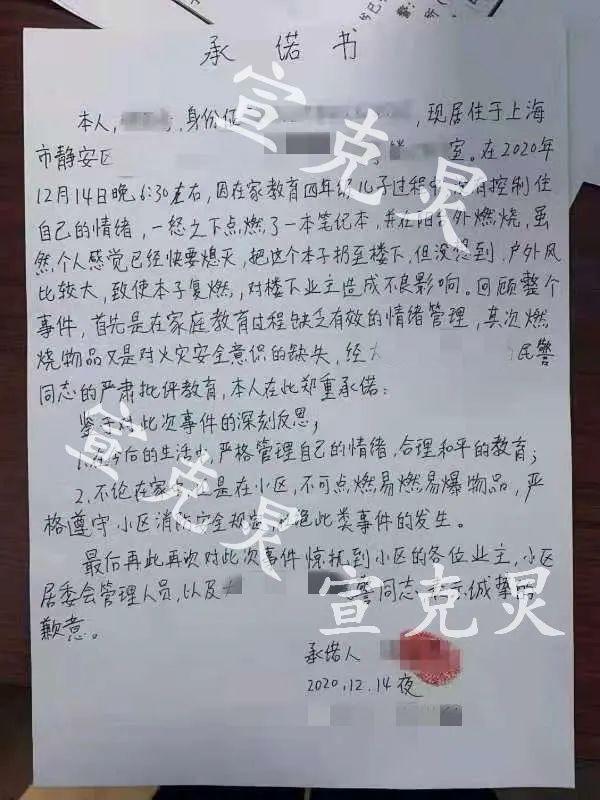 承诺书
本人, 身份证 , 现居住于上海
市静安区 室。在2020年
12月14日晚6:30左右,因在家教育四年级儿子过程中没有控制住
自己的情绪,一怒之下点燃了一本笔记本,并在阳台外燃烧,虽
然个人感觉已经快要熄灭,把这个本子扔至楼下,但没想到,户外风
比较大,致使本子复燃,对楼下业主造成不良影响。回顾整个
事件,首先是在家庭教育过程缺乏有效的情绪管理,其次燃
烧物品又是对火灾安全意识的缺失,经大 民警
同志的严肃批评教育,本人在此郑重承诺:
鉴于对此次事件的深刻反思;
1.在今后的生活中,严格管理自己的情绪,合理和平的教育;
2.不论在家中还是在小区,不可点燃易燃易爆物品,严
格遵守小区消防安全规范,杜绝此类事件的发生。
最后再此再次对此次事件惊扰到小区的各位业主,小区
居委会管理人员,以及大 警同志表示诚挚的
歉意。
承诺人
2020.12.14夜
宣克灵
宣克灵
宣克灵
宣克灵